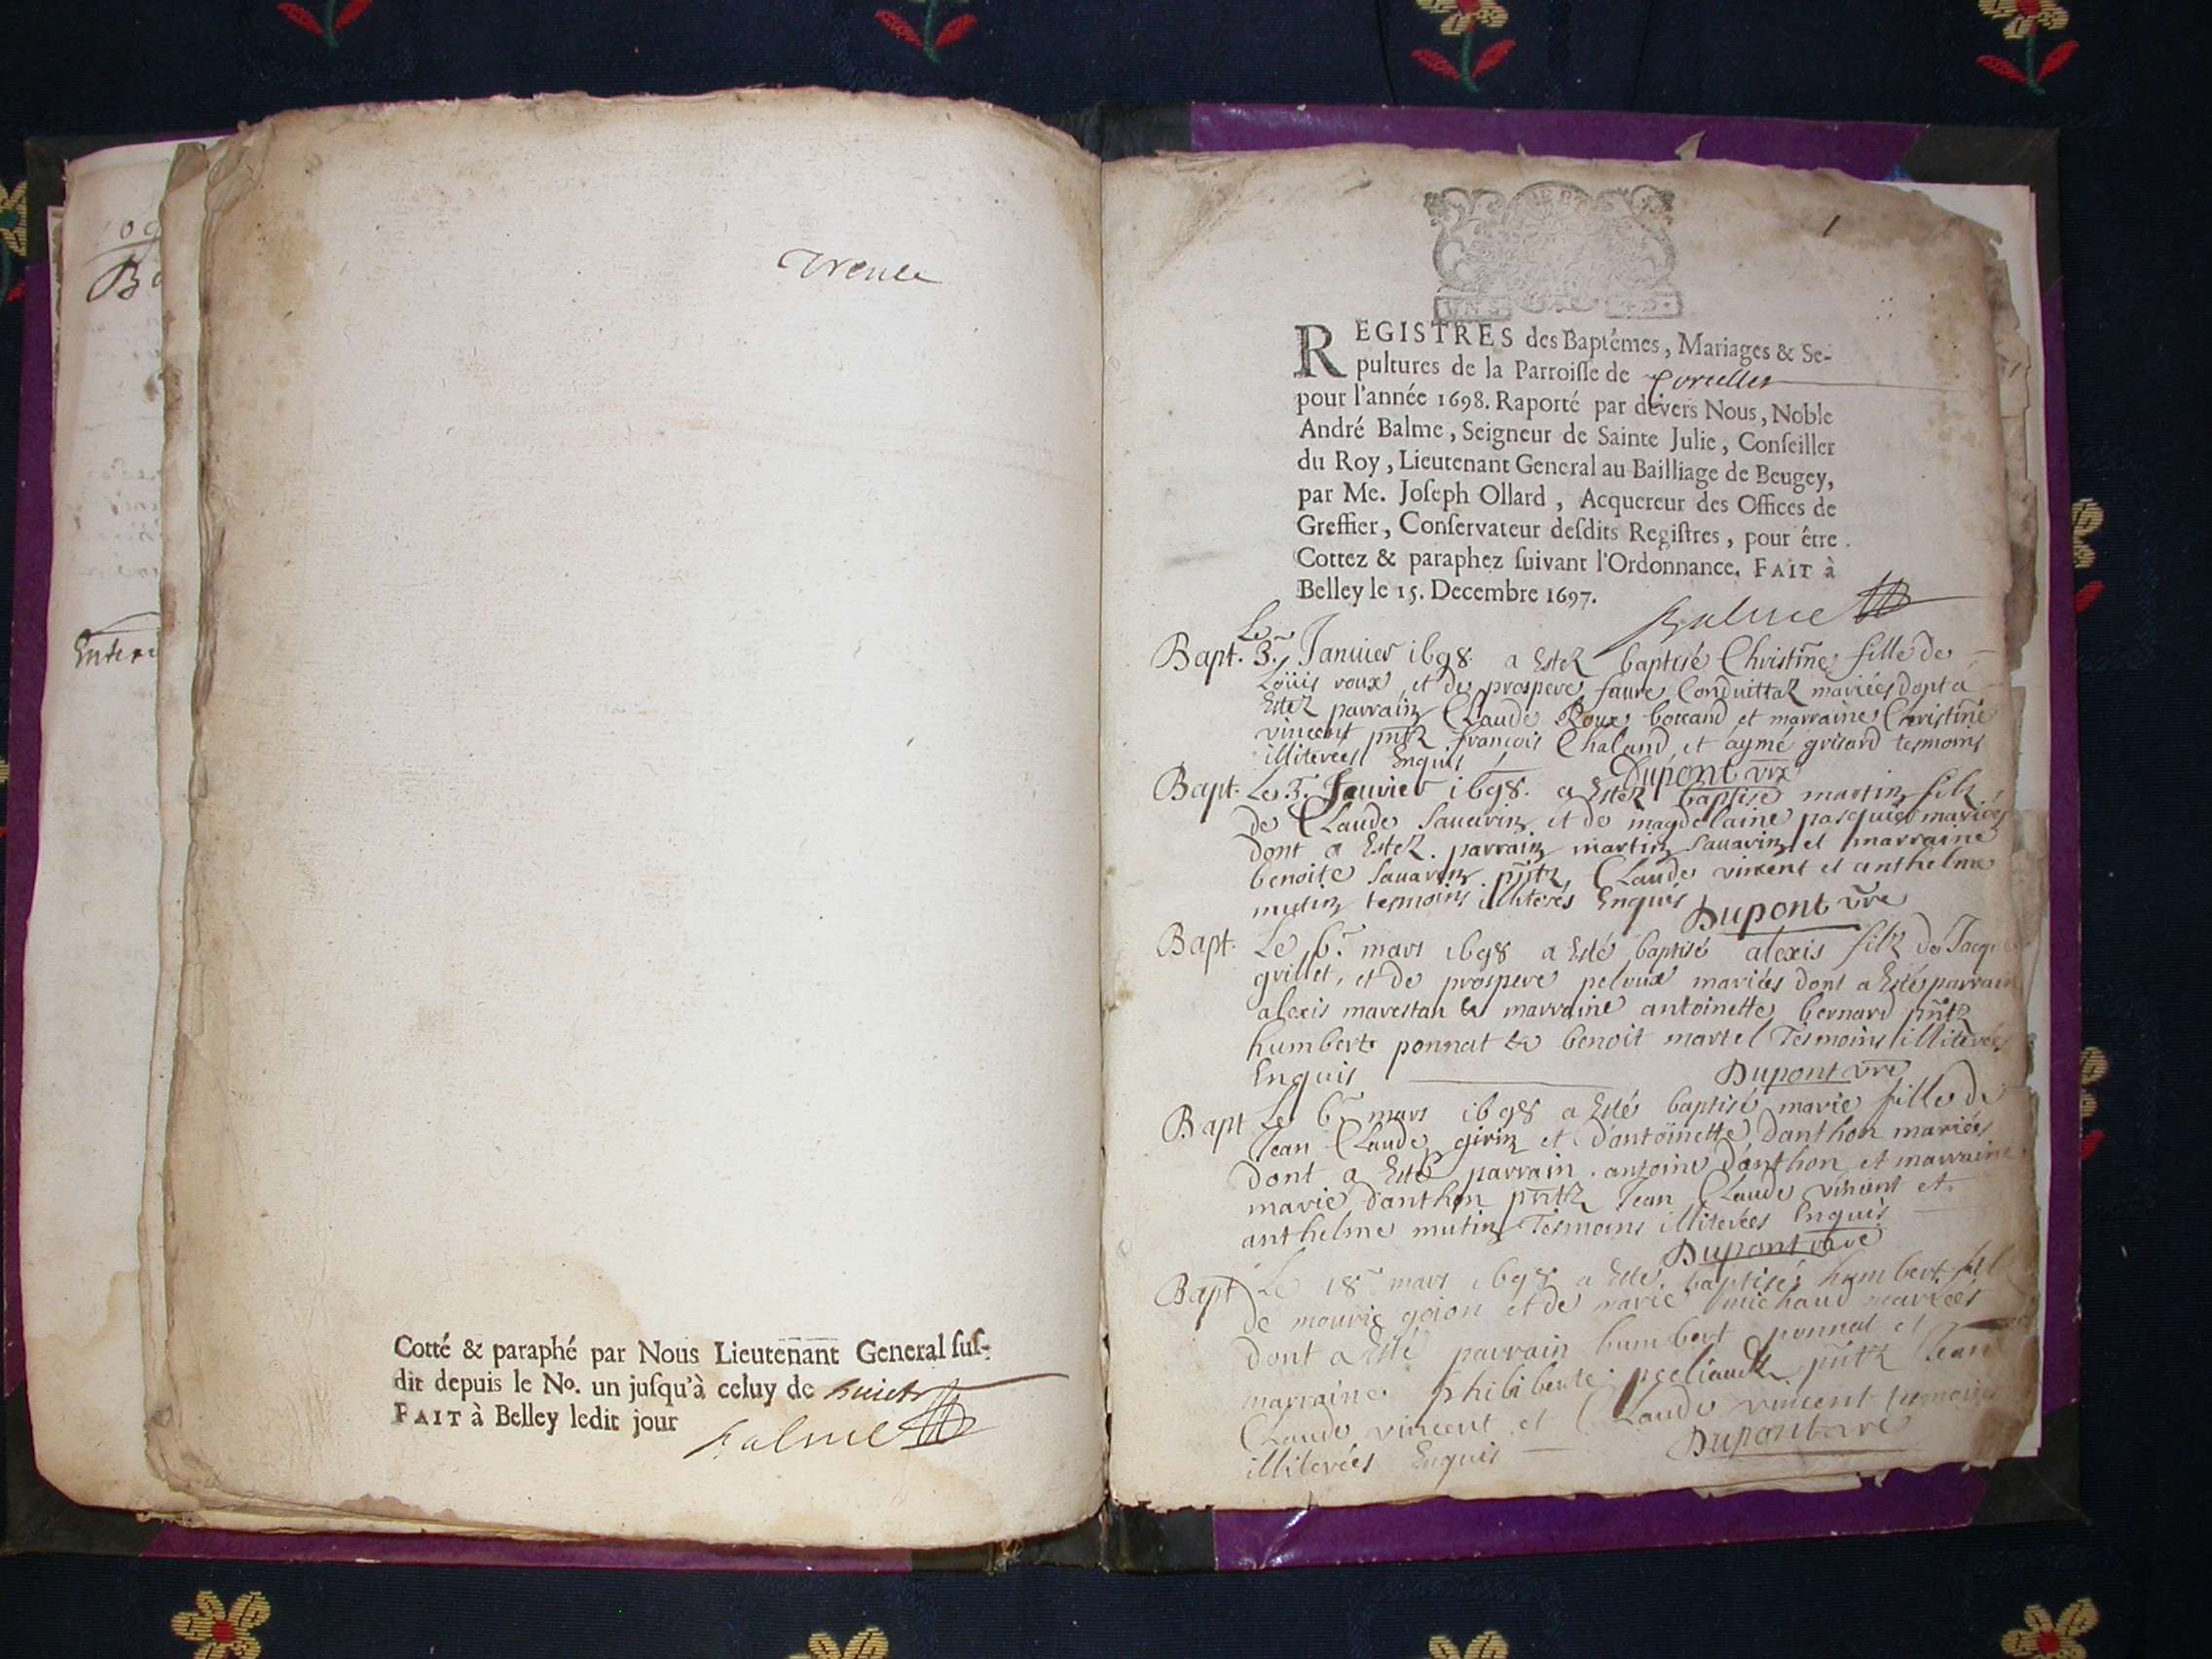 Bap
Enter
Cotté & paraphé par Nous Lieutenant General ſuſ-
dit depuis le No. un juſqu'à celuy de huict
FAIT à Belley ledit jour
Balme
1
REGISTRES des Baptêmes, Mariages & Se-
pultures de la Parroiſſe de Corcelles
pour l'année 1698. Raporté par devers Nous, Noble
André Balme, Seigneur de Sainte Julie, Conſeiller
du Roy, Lieutenant General au Bailliage de Beugey,
par Me. Joſeph Ollard, Acquereur des Offices de
Greffier, Conſervateur deſdits Regiſtres, pour être
Cottez & paraphez ſuivant l'Ordonnance. FAIT à
Belley le 15. Decembre 1697.
Balme
Bapt. Le 3. Januier 1698. a Estez baptisé Christine fille de
Loüis roux et de prospere faure Conduittaz mariées dont a
Estez parrain Claude Roux boccand et marraine Christine
vincent pntz françois Chaland et aymé grisard tesmoins
illiterées Enquis
Dupont vre
Bapt. Le 3. Feuvier 1698. a Estez baptise martin filz
de Claude Sauarin et de magdelaine pasquier mariées
dont a Estez parrain martin Sauarin et marraine
benoite Sauarin pntz Claude vincent et anthelme
mutin tesmoins illiterés Enquis
Dupont vre
Bapt. Le 6. mars 1698 a Esté baptisé alexis filz de Jacq
grillet, et de prospere peloux mariées dont a Esté parrain
alexis marestan & marraine antoinette bernard pntz
humbert ponnat & benoit martel Tesmoins illiterées
Enquis
Dupont vre
Bapt Le 6. mars 1698 a Esté baptisé marie fille de
Jean Claude girin et d'antoinette danthon mariées
dont a Esté parrain antoine danthon et marraine
marie danthon pntz Jean Claude vincent et
anthelme mutin Tesmoins illiterées Enquis
Dupont vre
Bapt Le 18 mars 1698 a Esté baptisé humbert fil
de mouris goion et de marie michaud mariées
dont a Esté parrain humbert ponnat et
marraine philiberte pntz Jean
Claude vincent et Claude vincent tesmoins
illiterées Enquis
Dupont vre